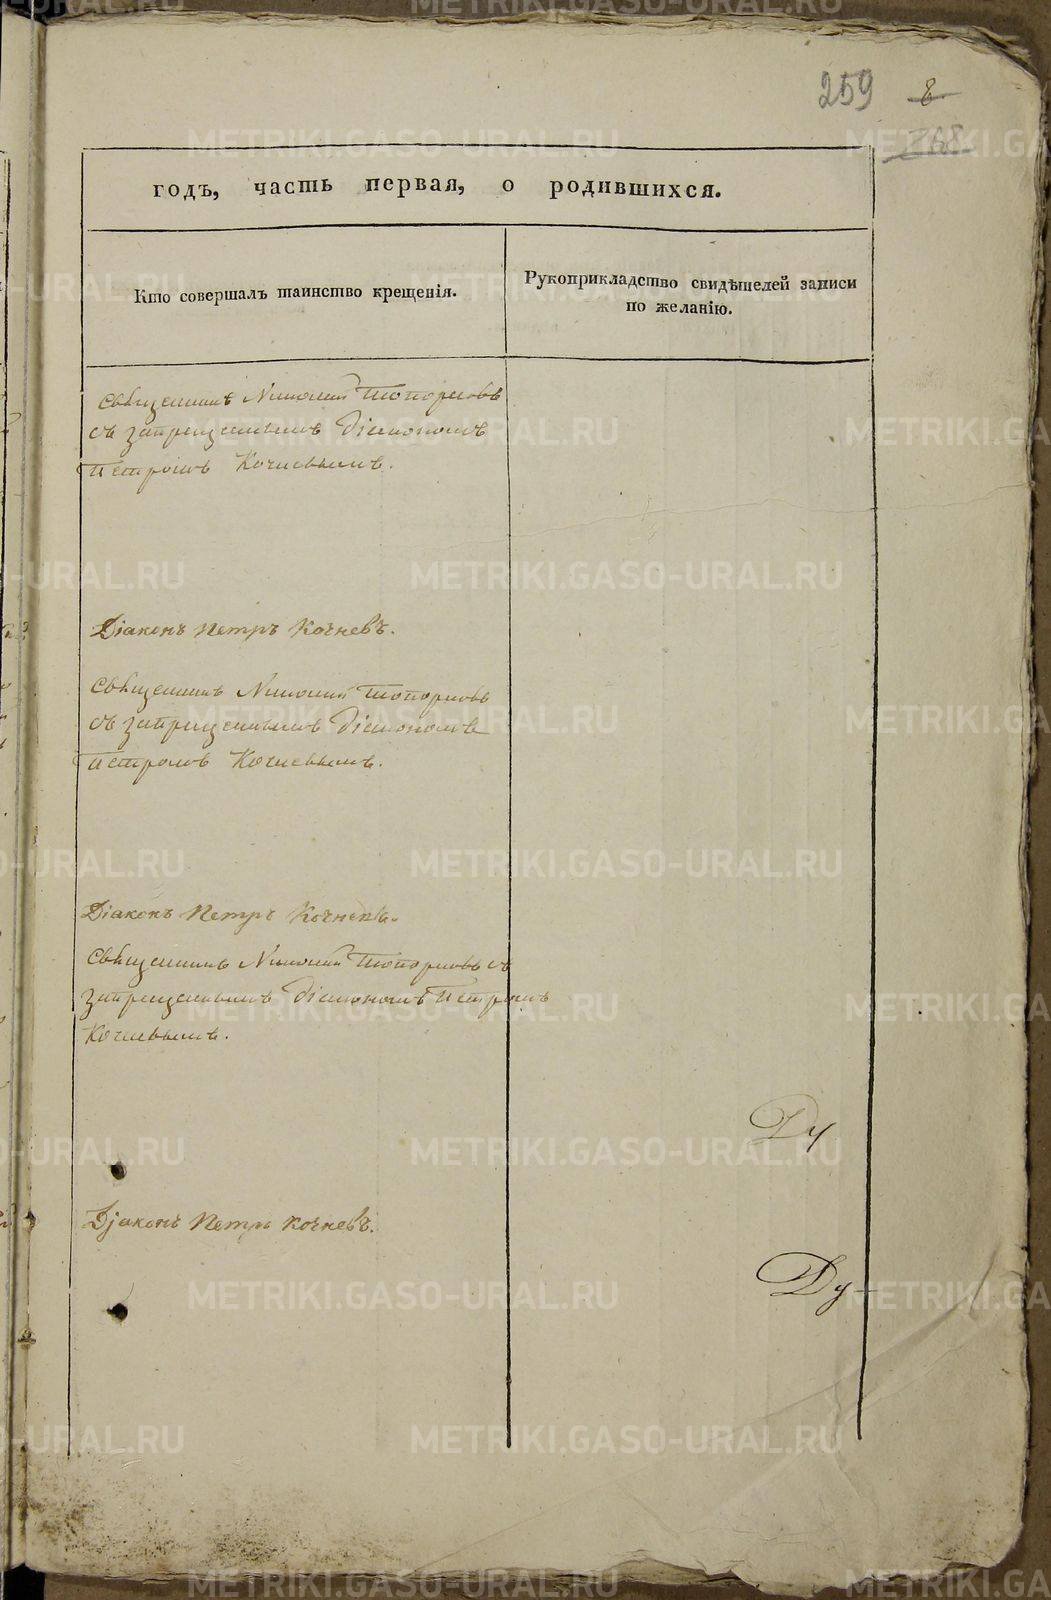 259
8
268
годъ, часть первая, о родившихся.
Кто совершалъ таинство крещенія.
Рукоприкладство свидѣтелей записи
по желанію.
Священникъ Николай Топорковъ
съ запрещеннымъ діакономъ
Петромъ Кочневымъ.
Діаконъ Петръ Кочневъ.
Священникъ Николай Топорковъ
съ запрещеннымъ діакономъ
Петромъ Кочневымъ.
Діаконъ Петръ Кочневъ.
Священникъ Николай Топорковъ съ
запрещеннымъ діакономъ Петромъ
Кочневымъ.
Ду
Діаконъ Петръ Кочневъ.
Ду
METRIKI.GASO-URAL.RU